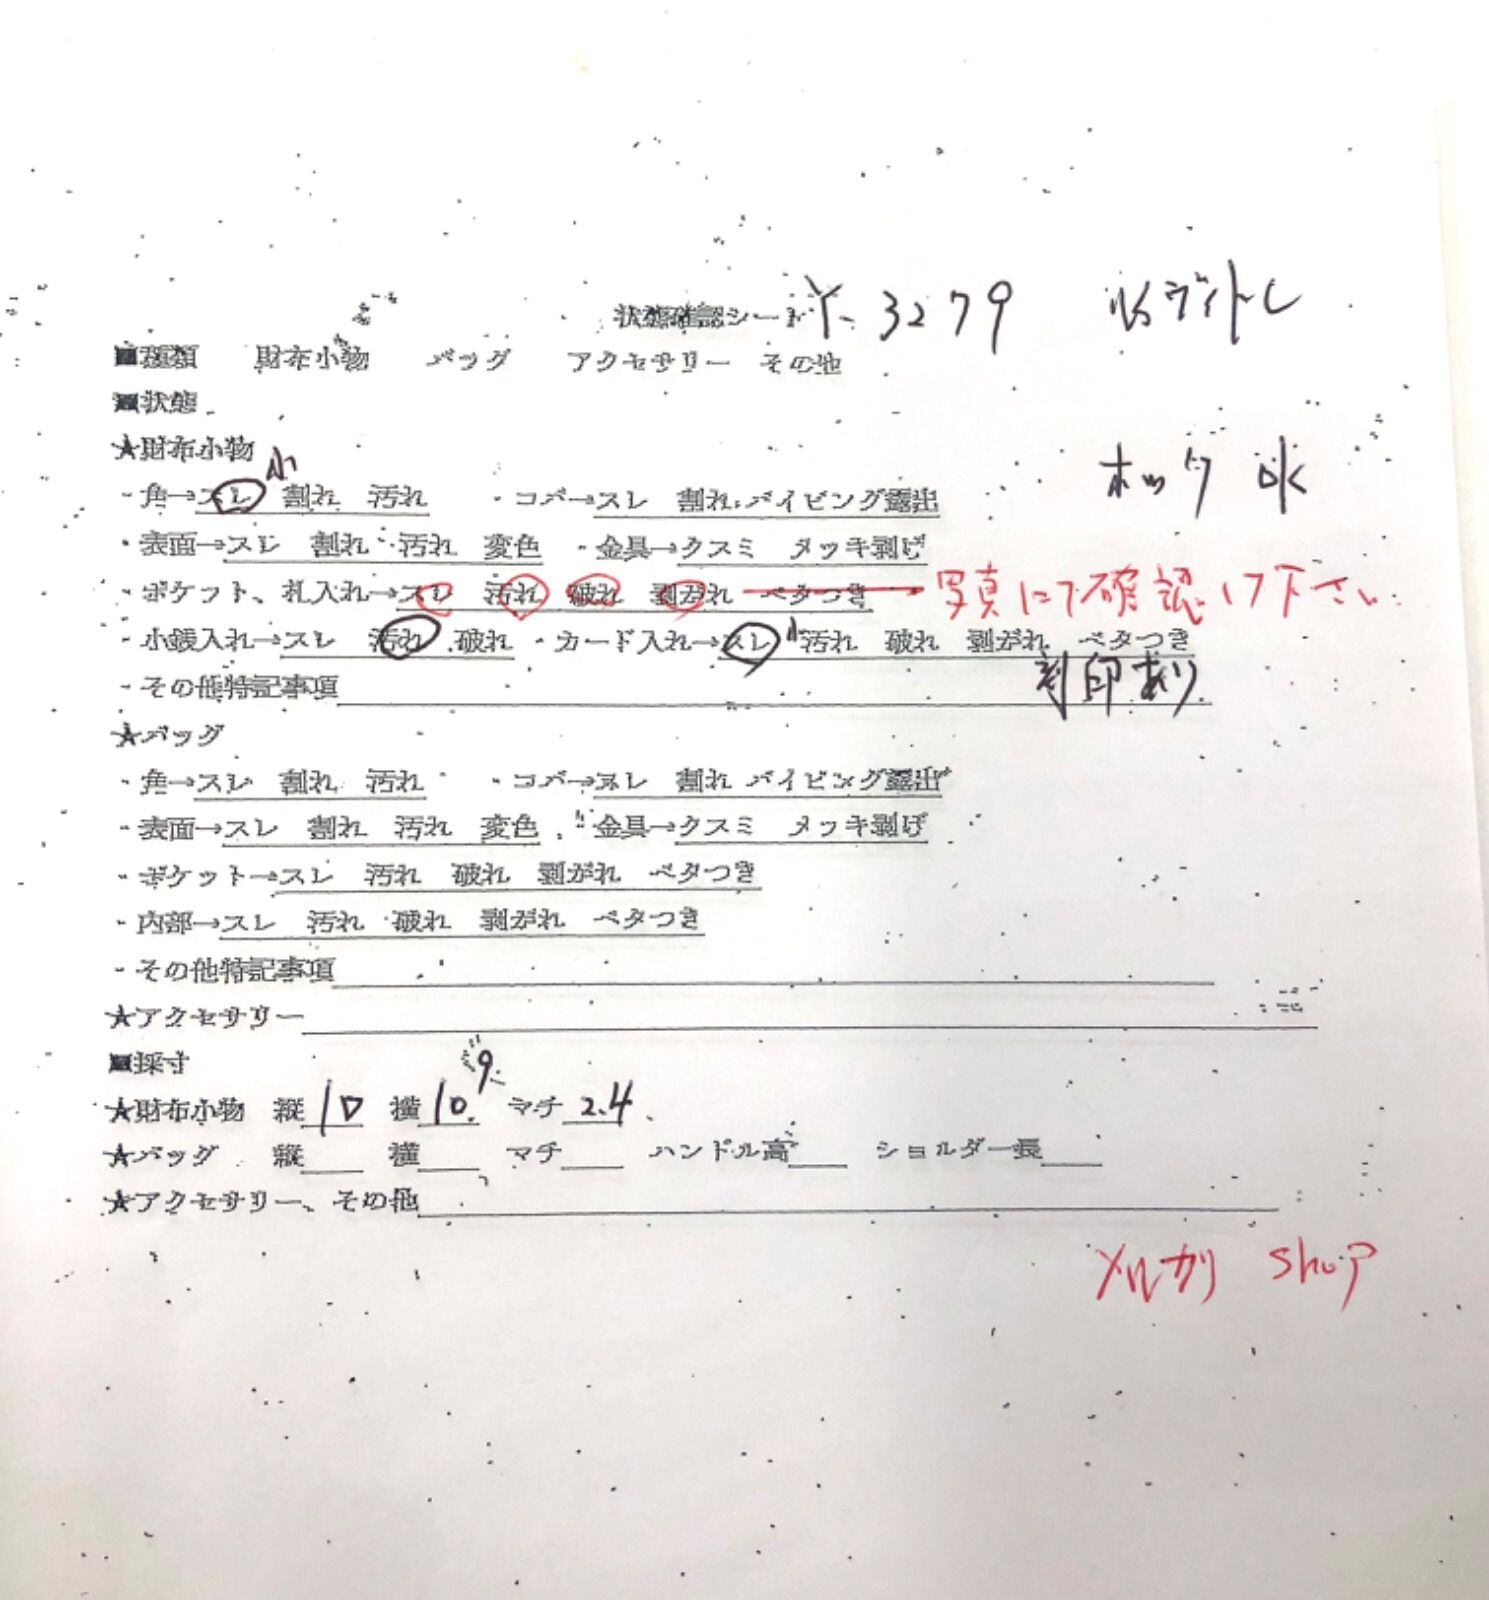 状態確認シート Y-3279
■種類 財布小物 バッグ アクセサリー その他
■状態
★財布小物
ホック OK
小
・角→スレ 割れ 汚れ ・コバ→スレ 割れ パイピング露出
・表面→スレ 割れ 汚れ 変色 ・金具→クスミ メッキ剥げ
・ポケット、札入れ→スレ 汚れ 破れ 剥がれ ベタつき 写真にて確認して下さい
・小銭入れ→スレ 汚れ 破れ ・カード入れ→スレ 小 汚れ 破れ 剥がれ ベタつき
・その他特記事項 刻印あり
★バッグ
・角→スレ 割れ 汚れ ・コバ→スレ 割れ パイピング露出
・表面→スレ 割れ 汚れ 変色 ・金具→クスミ メッキ剥げ
・ポケット→スレ 汚れ 破れ 剥がれ ベタつき
・内部→スレ 汚れ 破れ 剥がれ ベタつき
・その他特記事項
★アクセサリー
■採寸
9
★財布小物 縦 10 横 10. マチ 2.4
★バッグ 縦 横 マチ ハンドル高 ショルダー長
★アクセサリー、その他
メルカリ shop